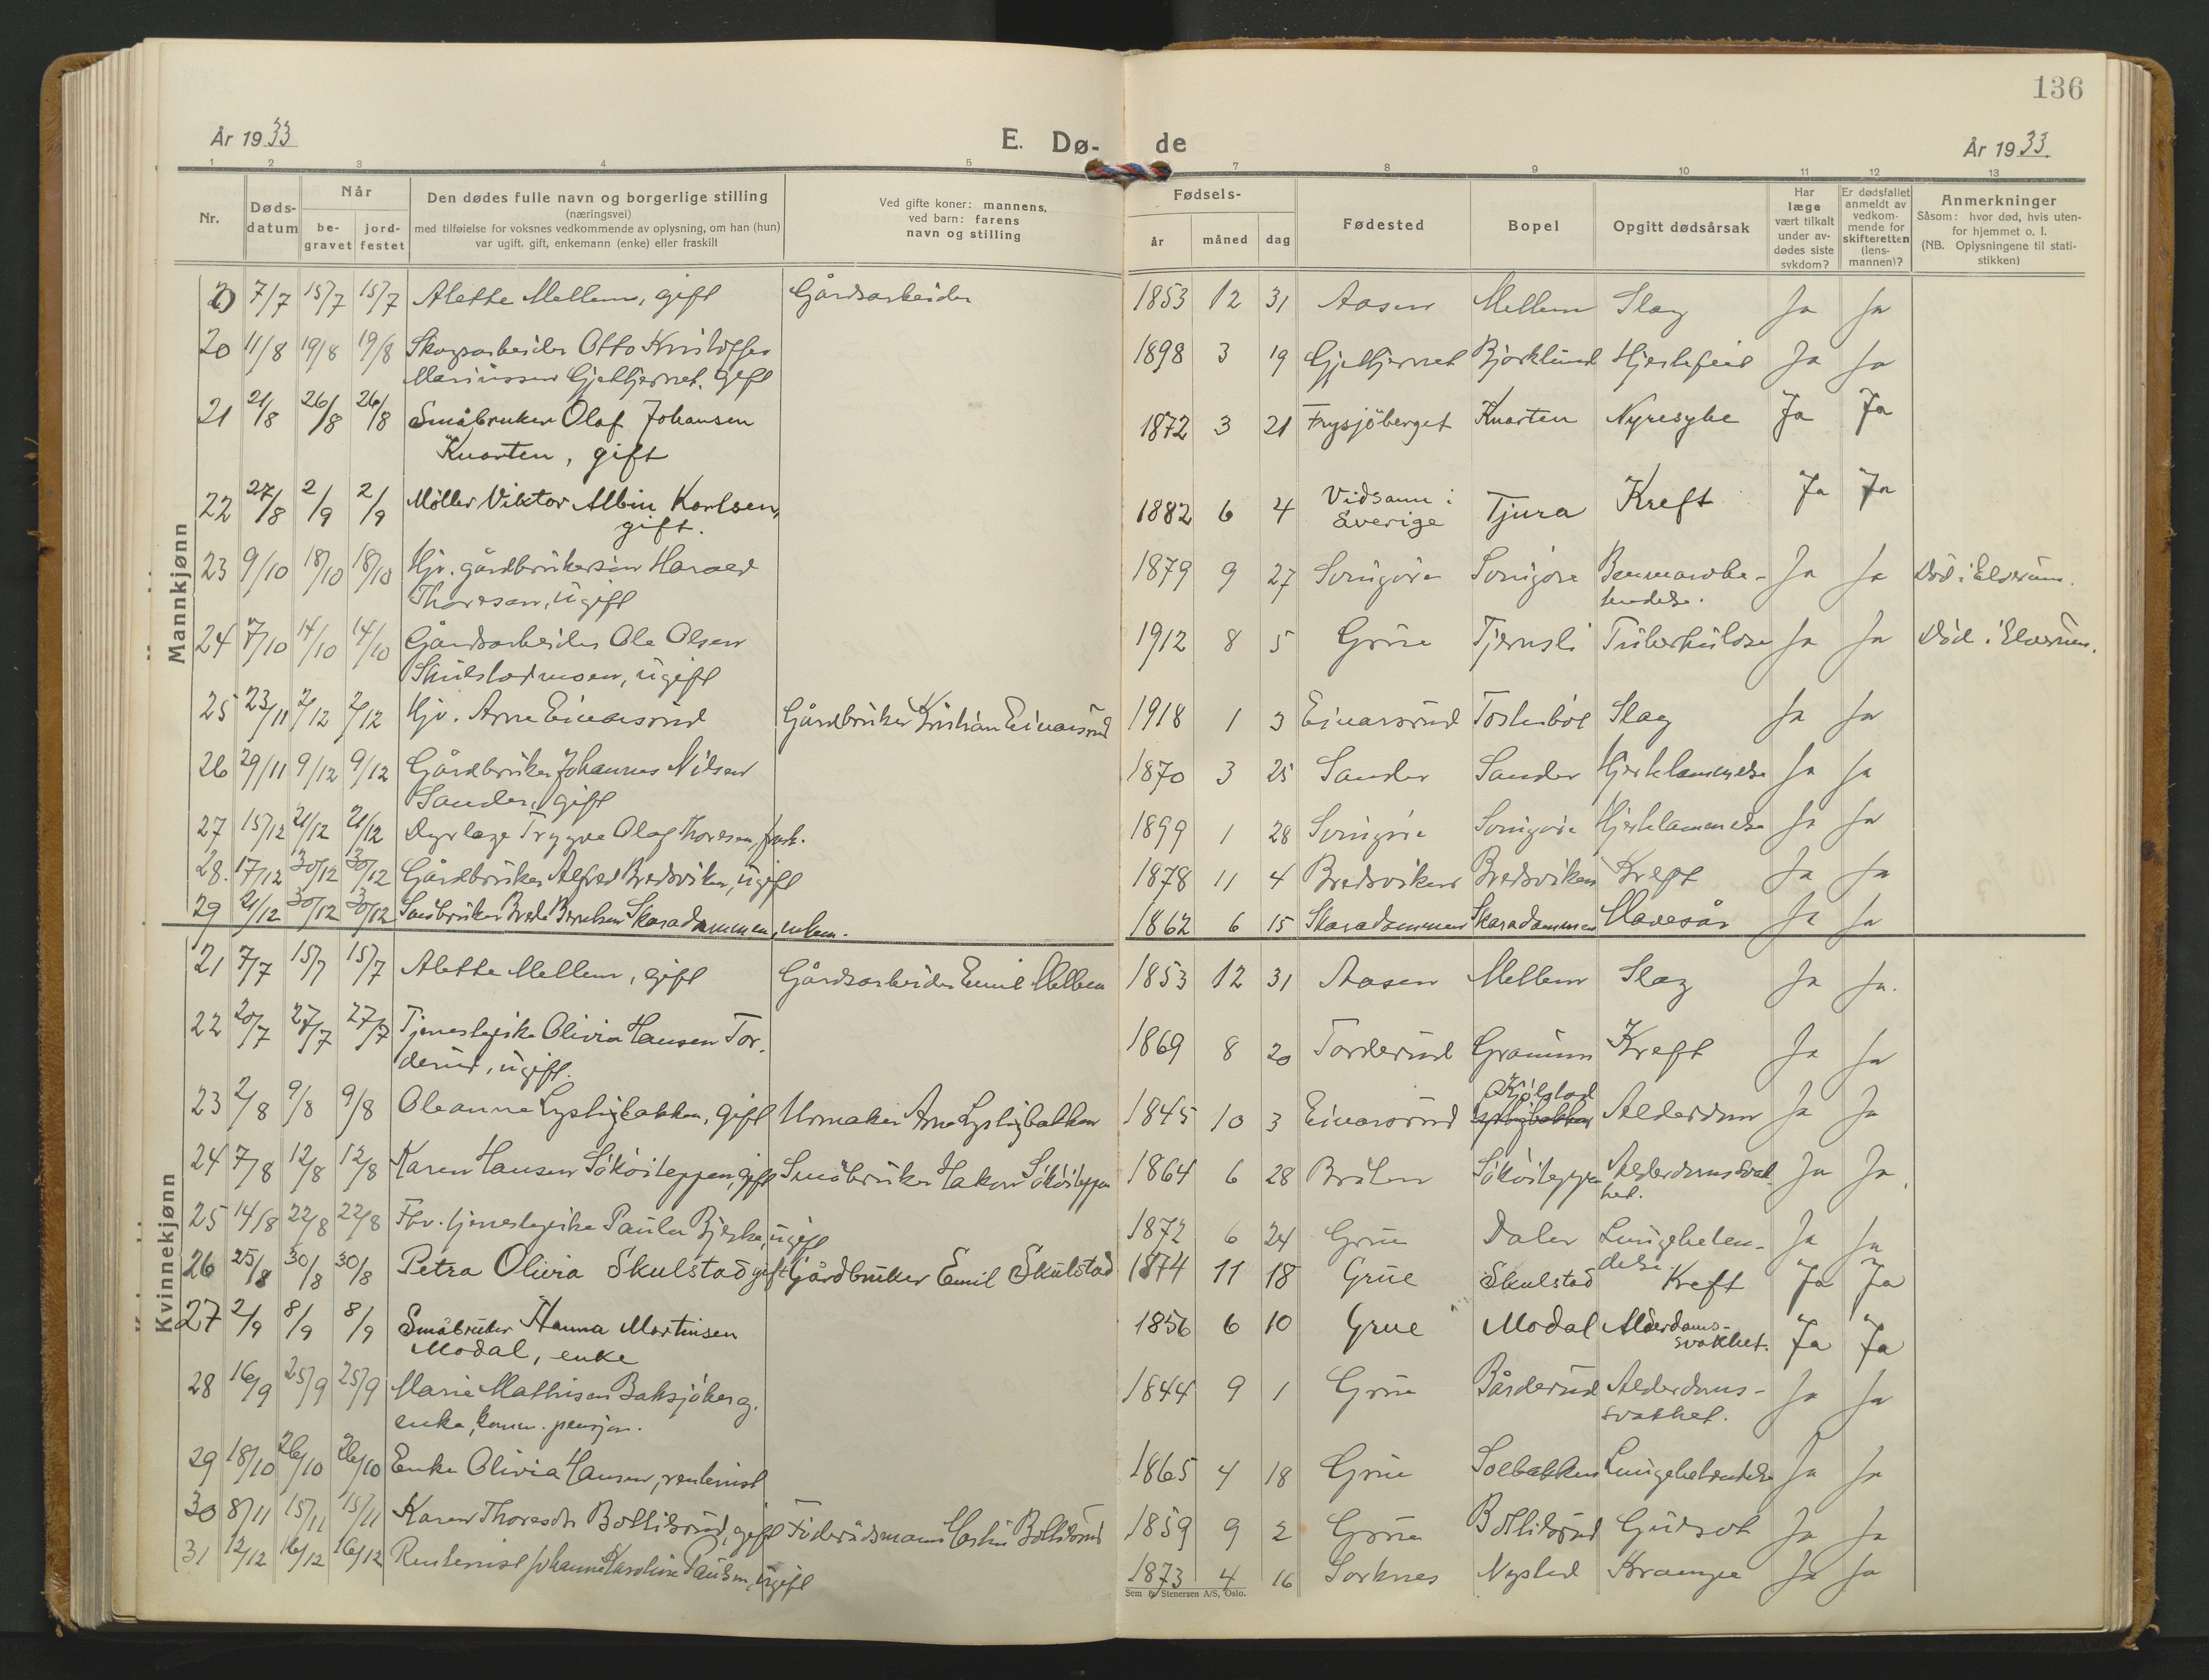 136
År 1933
E. Dø-
de
År 1933.
1 2 3 4 5 7 8 9 10 11 12 13
Nr.
Døds-
datum
Når
be-
gravet
jord-
festet
Den dødes fulle navn og borgerlige stilling
(næringsvei)
med tilføielse for voksnes vedkommende av oplysning, om han (hun)
var ugift, gift, enkemann (enke) eller fraskilt
Ved gifte koner: mannens,
ved barn: farens
navn og stilling
Fødsels-
år måned dag
Fødested
Bopel
Opgitt dødsårsak
Har
læge
vært tilkalt
under av-
dødes siste
sykdom?
Er dødsfallet
anmeldt av
vedkom-
mende for
skifteretten
(lens-
mannen)?
Anmerkninger
Såsom: hvor død, hvis uten-
for hjemmet o. l.
(NB. Oplysningene til stati-
stikken)
Mannkjønn
20 7/7 15/7 15/7 Alette Mellem, gift Gårdsarbeider 1853 12 31 Aasen Mellem Slag Ja Ja
20 11/8 19/8 19/8 Skogsarbeider Otto Kristoffer 1898 3 19 Gjettjernet Bjørklund Hjertefeil Ja Ja
Mariussen Gjettjernet, gift
21 21/8 26/8 26/8 Småbruker Olaf Johansen 1872 3 21 Frysjöberget Kvarten Nyresyke Ja Ja
Kvarten, gift
22 27/8 2/9 2/9 Møller Viktor Albin Karlsen, 1882 6 4 Vidsann i Tjura Kreft Ja Ja
gift. Sverige
23 9/10 18/10 18/10 Hjv. gårdbrukersøn Harald 1879 9 27 Sorigøre Sorigøre Benmarvbe- Ja Ja Død i Elverum.
Thoresen, ugift tendelse.
24 7/10 14/10 14/10 Gårdsarbeider Ole Olsen 1912 8 5 Grue Tjernsli Tuberkulose Ja Ja Död i Elverum.
Skulstadmoen, ugift
25 23/11 2/12 2/12 Hjv. Arne Einarsrud Gårdbruker Kristian Einarsrud 1918 1 3 Einarsrud Slag Ja Ja
26 29/11 9/12 9/12 Gårdbruker Johannes Nilsen 1870 3 25 Sander Sander Hjertelammelse Ja Ja
Sander, gift
27 15/12 21/12 21/12 Dyrlæge Trygve Olaf Thoresen, frask. 1899 1 28 Sorigøre Sorigøre Hjertelammelse Ja Ja
28. 17/12 30/12 30/12 Gårdbruker Alfred Bredsviken, ugift 1878 11 4 Bredsviken Bredsviken Kreft Ja Ja
29 21/12 30/12 30/12 Småbruker Brede Berntsen Skaradammen, enkem. 1862 6 15 Skaradammen Skaradammen Mavesår Ja Ja
Kvinnekjønn
21 7/7 15/7 15/7 Alette Mellem, gift Gårdsarbeider Emil Mellem 1853 12 31 Aasen Mellem Slag Ja Ja.
22 20/7 27/7 27/7 Tjenestepike Olivia Hansen Tor- 1869 8 20 Torderud Gramum Kreft Ja Ja
derud, ugift.
23 2/8 9/8 9/8 Oleanna Lystigbakken, gift Urmaker Arne Lystigbakken 1845 10 3 Einarsrud Lystigbakken Kjölstad Alderdom Ja Ja
24 7/8 12/8 12/8 Karen Hansen Sökösteppen, gift Småbruker Hakon Sökösteppen 1864 6 28 Bråten Sökösteppen Alderdomssvak Ja Ja
het.
25 14/8 22/8 22/8 Fhv. tjenestepike Paula Bjerke, ugift 1872 6 24 Grue Daler Lungebeten- Ja Ja
delse.
26 25/8 30/8 30/8 Petra Olivia Skulstad gift Gårdbruker Emil Skulstad 1874 11 18 Grue Skulstad Kreft Ja Ja
27 2/9 8/9 8/9 Småbruker Hanna Martinsen 1856 6 10 Grue Modal Alderdoms- Ja Ja
Modal, enke svakhet.
28 16/9 25/9 25/9 Marie Mathisen Baksjöberg. 1844 9 1 Grue Bårderud Alderdoms- Ja Ja
enke, komm. pensjon. svakhet.
29 18/10 26/10 26/10 Enke Olivia Hansen, rentenist 1865 4 18 Grue Solbakken Lungebetendelse Ja Ja
30 8/11 15/11 15/11 Karen Thoresdtr Bottilsrud, gift Föderådsmann Bottilsrud 1859 9 2 Grue Bottilsrud Gulsot Ja Ja
31 12/12 16/12 16/12 Rentenist Johanne Karoline Paulsen, ugift 1873 4 16 Sorknes Nystad Krampe Ja Ja
Sem & Stenersen A/S, Oslo.